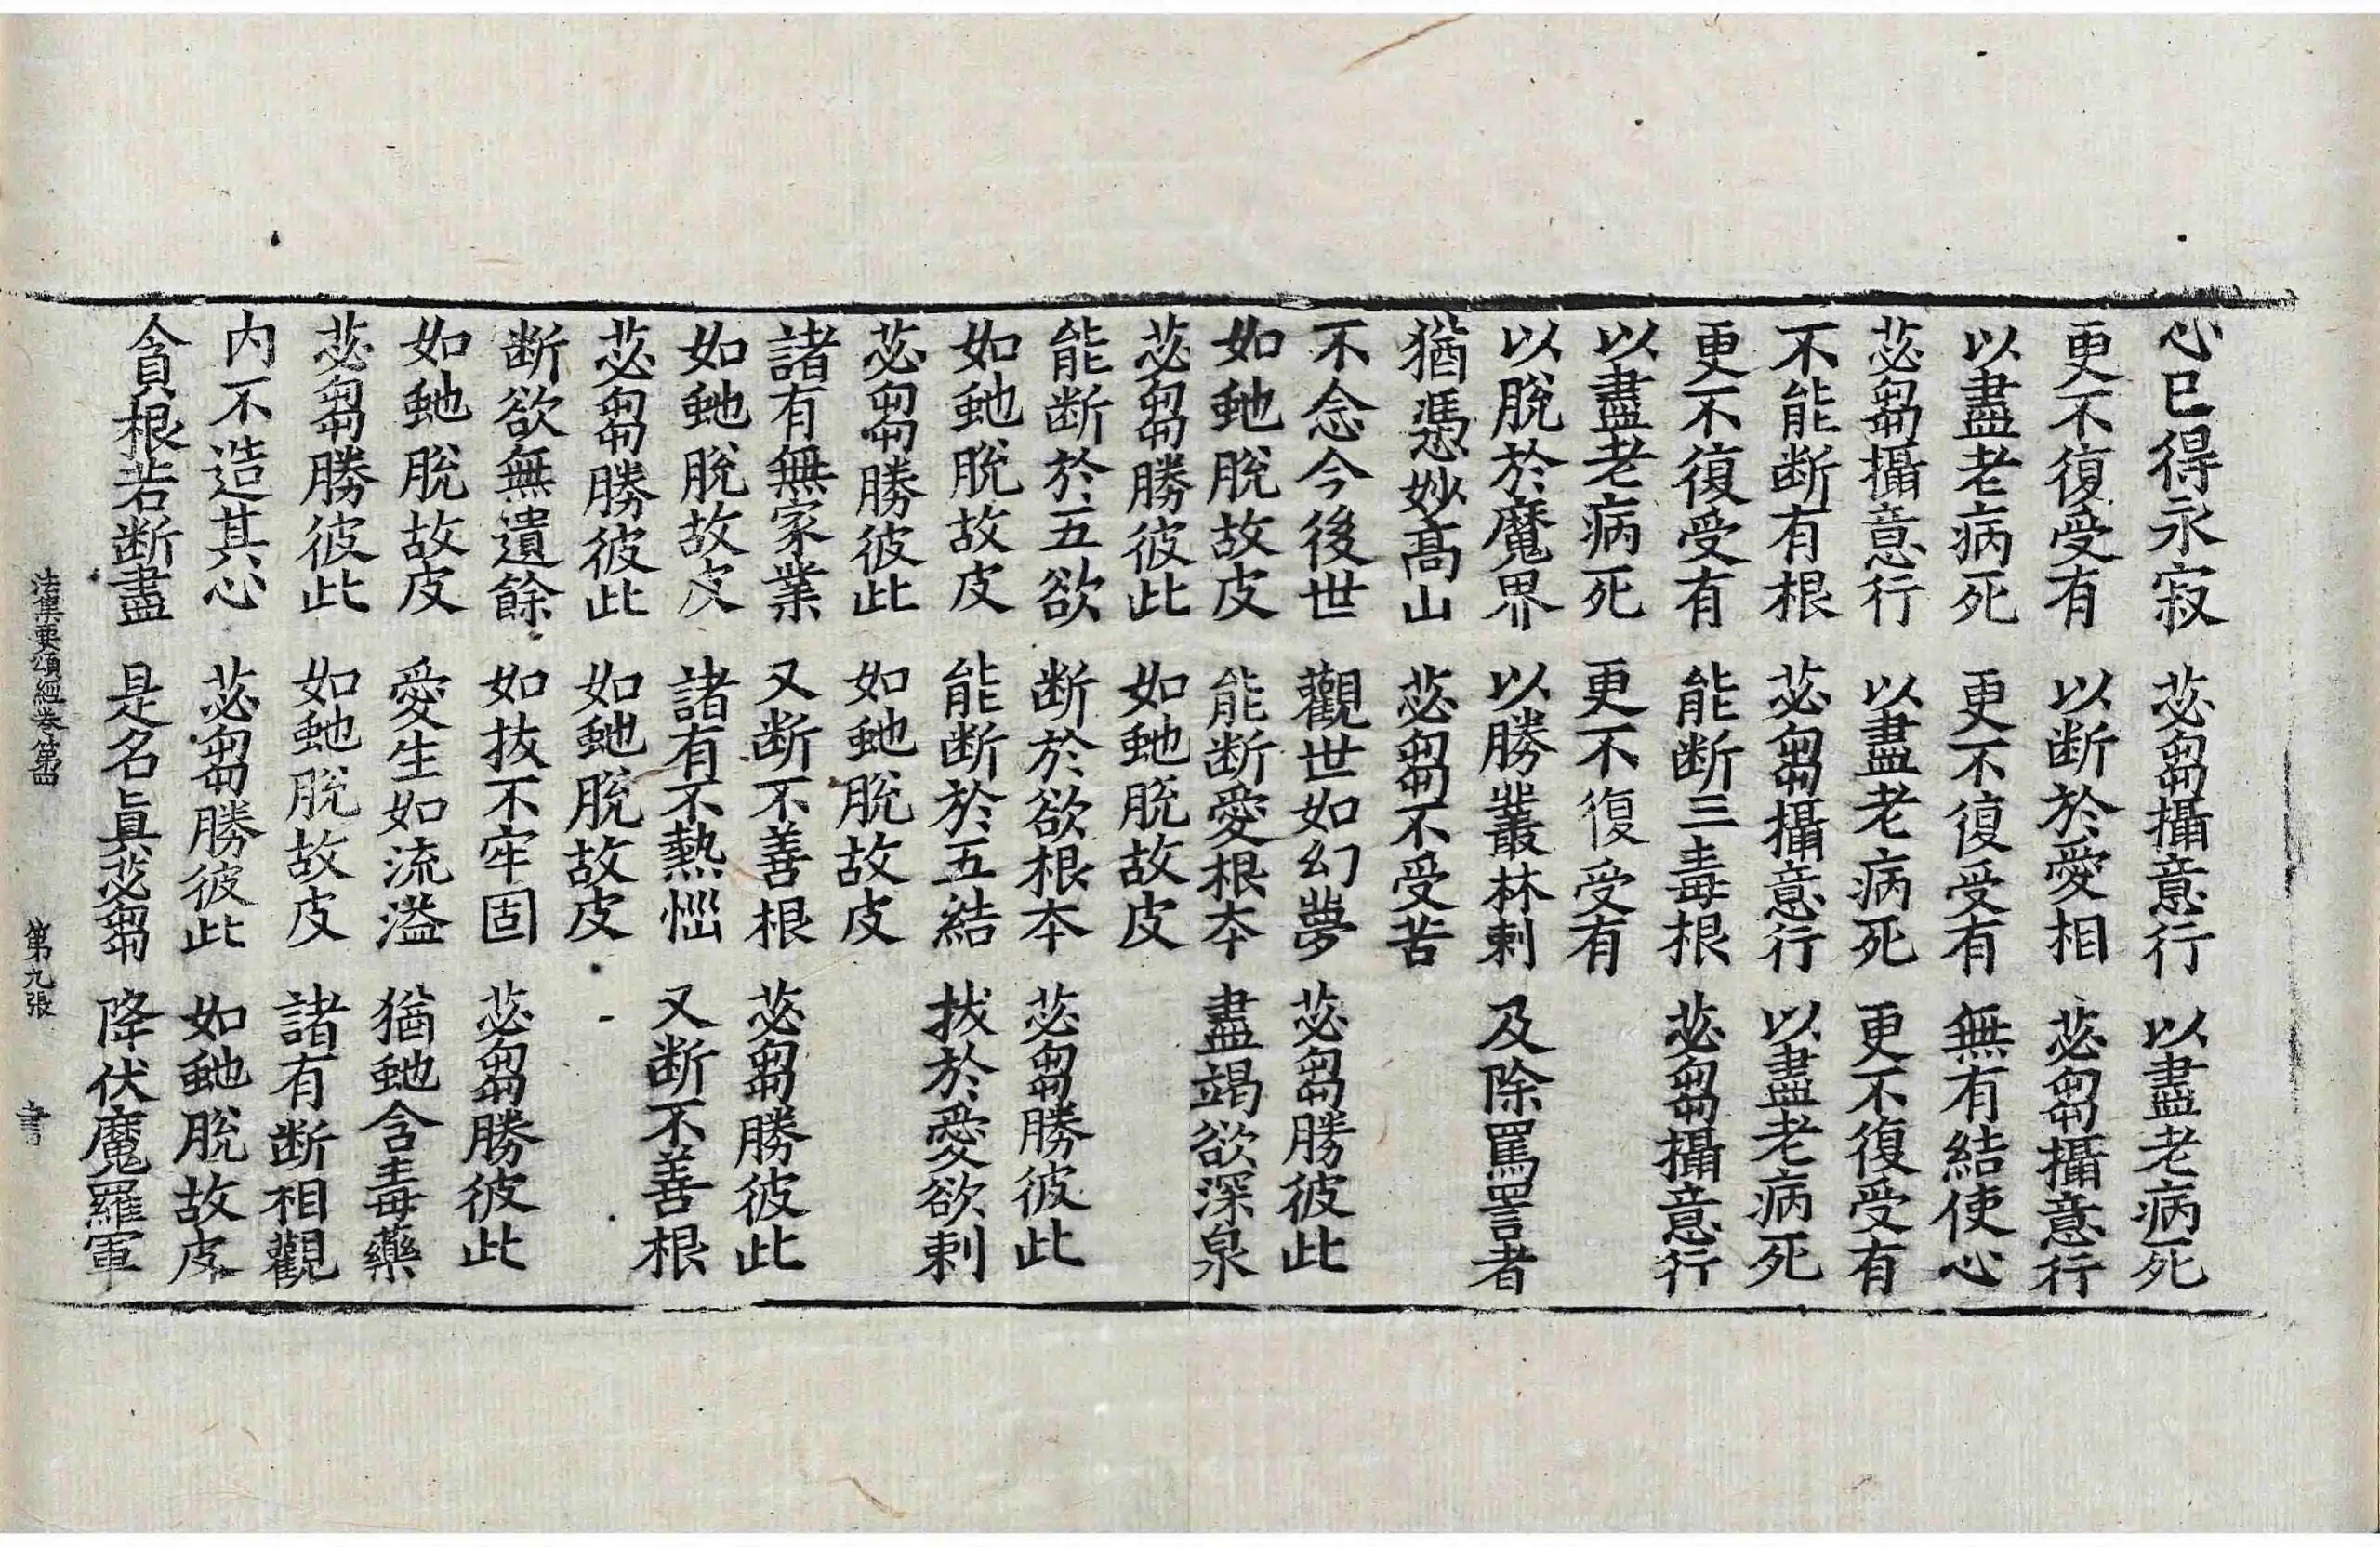 心已得永寂　苾芻攝意行　以盡老病死
更不復受有　以斷於愛相　苾芻攝意行
以盡老病死　更不復受有　無有結使心
苾芻攝意行　以盡老病死　更不復受有
不能断有根　苾芻攝意行　以盡老病死
更不復受有　能断三毒根　苾芻攝意行
以盡老病死　更不復受有
以脫於魔界　以勝叢林刺　及除罵詈者
猶憑妙髙山　苾芻不受苦
不念今後世　觀世如幻夢　苾芻勝彼此
如虵脫故皮　能断愛根本　盡竭欲深泉
苾芻勝彼此　如虵脫故皮
能断於五欲　断於欲根本　苾芻勝彼此
如虵脫故皮　能断於五結　拔於愛欲刺
苾芻勝彼此　如虵脫故皮
諸有無家業　又断不善根　苾芻勝彼此
如虵脫故皮　諸有不熱惱　又断不善根
苾芻勝彼此　如虵脫故皮
断欲無遺餘　如拔不牢固　苾芻勝彼此
如虵脫故皮　愛生如流溢　猶虵含毒藥
苾芻勝彼此　如虵脫故皮　諸有断相觀
内不造其心　苾芻勝彼此　如虵脫故皮
貪根若断盡　是名眞苾芻　降伏魔羅軍
法集要頌經卷第四　第九張　書